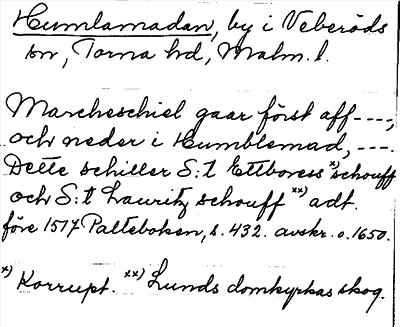 Humlamadan, by i Veberöds
sn, Torna hd, Malm. l.
Marcheschiel gaar först aff ---,
och neder i Humblemad, ---.
Dette schiller S:t Ettboress x) schouff
och S:t Lauritz schouff xx) adt.
före 1517 Palteboken, s. 432. avskr. o. 1650.
x) Korrupt. xx) Lunds domkyrkas skog.